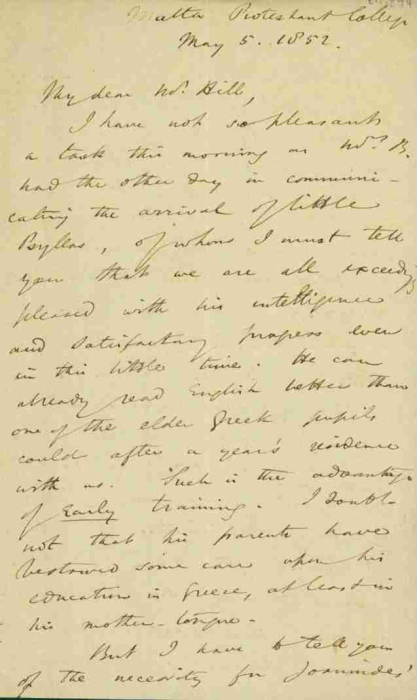 Malta Protestant College
May 5. 1852.
My dear Mr. Hill,
I have not so pleasant
a task this morning as Mrs. B.
had the other day in communi-
cating the arrival of little
Psyllas, of whom I must tell
you that we are all exceedingly
pleased with his intelligence
and satisfactory progress even
in this little time. He can
already read English better than
one of the elder Greek pupils
could after a year's residence
with us. Such is the advantage
of Early training. I doubt
not that his parents have
bestowed some care upon his
education in Greece, at least in
his mother-tongue.
But I have to tell you
of the necessity for Joannides'